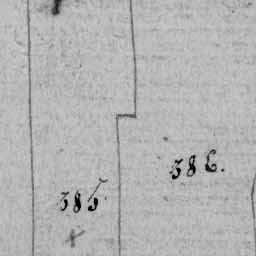 386.
385.